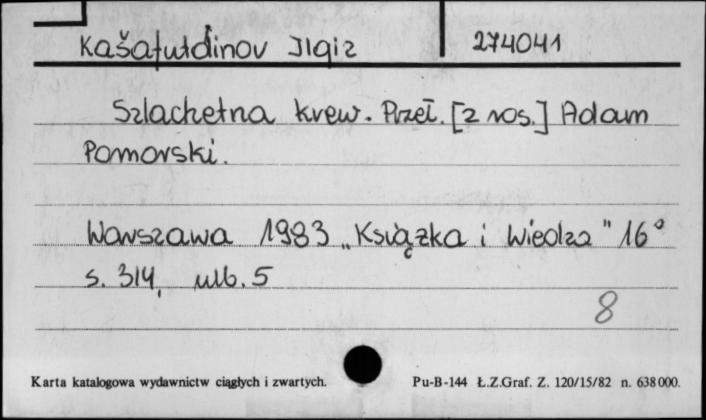 Kašafutdinov Ilgiz 274041
Szlachetna krew. Przeł. [z ros.] Adam
Pomorski.
Warszawa 1983 „Książka i Wiedza" 16°
s. 314, ulb. 5
8
Karta katalogowa wydawnictw ciągłych i zwartych. Pu-B-144 Ł.Z.Graf. Z. 120/15/82 n. 638000.